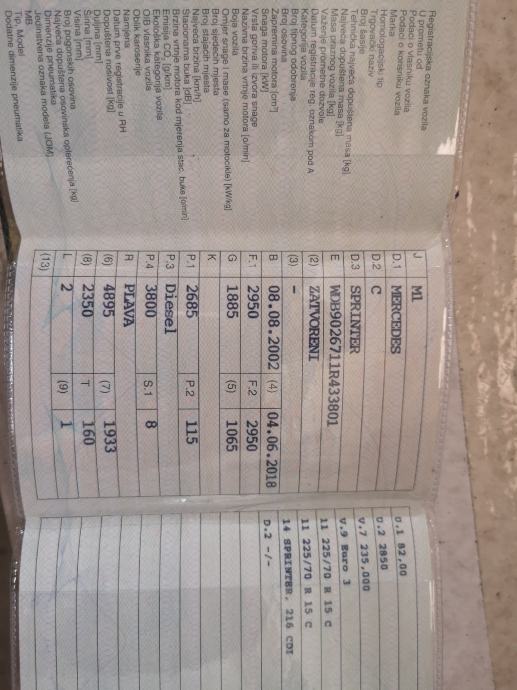 Registracijska oznaka vozila
U prometu od
Podaci o vlasniku vozila
Podaci o korisniku vozila
Marka
Homologacijski tip
Trgovački naziv
Broj šasije
Tehnički najveća dopuštena masa [kg]
Najveća dopuštena masa [kg]
Masa praznog vozila [kg]
Razdoblje važenja dozvole
Datum registracije reg. oznakom pod A
Kategorija vozila
Broj tipnog odobrenja
Broj osovina
Zapremina motora [cm³]
Snaga motora [kW]
Vrsta goriva ili izvora snage
Nazivna brzina vrtnje motora [o/min]
Boja vozila
Omjer snage i mase (samo za motocikle) [kW/kg]
Broj sjedećih mjesta
Broj stajaćih mjesta
Najveća brzina [km/h]
Stacionarna buka [dB]
Brzina vrtnje motora kod mjerenja stac. buke [o/min]
Emisija CO₂ [g/km]
Ekološka kategorija vozila
OIB vlasnika vozila
Oblik karoserije
Namjena
Datum prve registracije u RH
Dopuštena nosivost [kg]
Duljina [mm]
Širina [mm]
Visina [mm]
Broj pogonskih osovina
Najveća dopuštena osovinska opterećenja [kg]
Dimenzije pneumatika
Jedinstvena oznaka modela (JOM)
MB
Tip, Model
Dodatne dimenzije pneumatika
J M1
D.1 MERCEDES
D.2 C
D.3 SPRINTER
E WDB9026711R433801
(2) ZATVORENI
(3) -
B 08.08.2002 (4) 04.06.2018
F.1 2950 F.2 2950
G 1885 (5) 1065
K
P.1 2685 P.2 115
P.3 Diesel
P.4 3800 S.1 8
R PLAVA
(6) 4895 (7) 1933
(8) 2350 T 160
L 2 (9) 1
(13)
U.1 82,00
U.2 2850
V.7 235,000
V.9 Euro 3
11 225/70 R 15 C
11 225/70 R 15 C
14 SPRINTER, 216 CDI
D.2 -/-